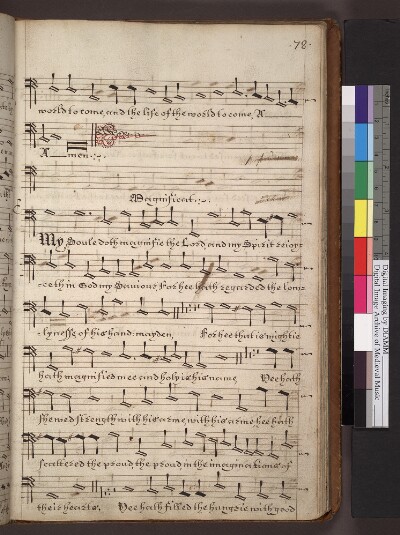 ·78·
world to come, and the life of the world to come, A
A—men:·:
Magnificat:·
My Soule doth magnifie the Lord, and my Spirit reioy=
=ceth in God my Saviour For hee hath regarded the low=
=lynesse of his hand: mayden, For hee that is mightie
hath magnified mee and holy is his name, Hee hath
shewed strength with his arme, with his arme hee hath
scattered the proud the proud in the imaginations of
their hearts. Hee hath filled the hungrie with good
Digital Imaging by DIAMM
Digital Image Archive of Medieval Music